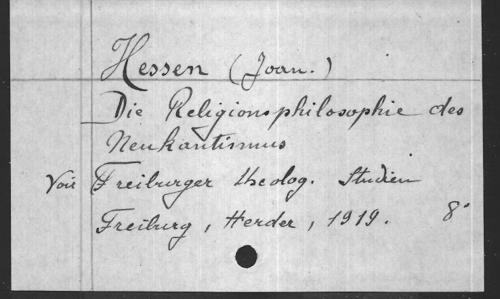 Hessen (Joan.)
Die Religionsphilosophie des
Neukantismus
Voir Freiburger theolog. Studien
Freiburg, Herder, 1919. 8°